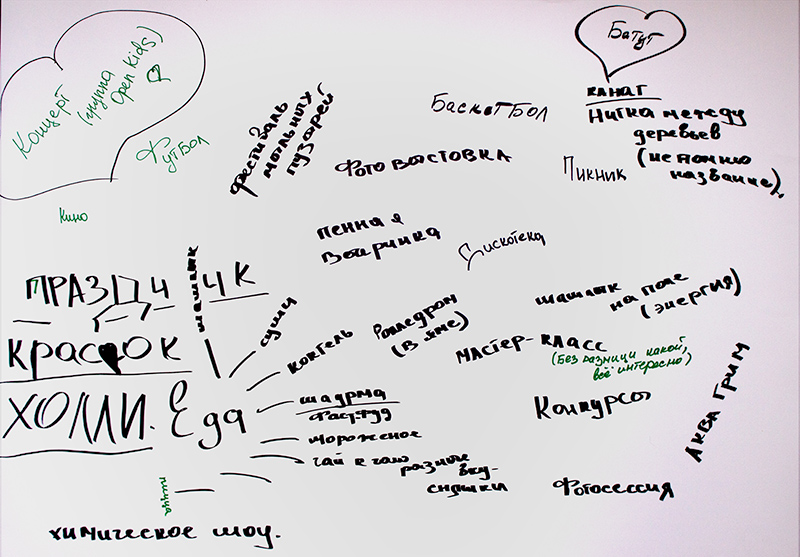 Концерт
(группа
Open Kids)
Футбол
Кино
фестиваль
мыльных
пузырей
Баскетбол
Батут
канат
Нитка между
деревьев
(не помню
название)
Пикник
Фото выстовка
Пенная
Вечеринка
Дискотека
ПРАЗДНИК
красок
ХОЛЛИ.
Еда
шашлык
суши
коктель
шаурма
Фастфуд
мороженое
чай к чаю
разные
вку-
сняшки
пицца
Ролледром
(в яме)
Мастер-класс
(Без разници какой,
всё интересно)
шашлык
на поле
(энергия)
Конкурсы
Аква Грим
Фотосессия
химическое шоу.